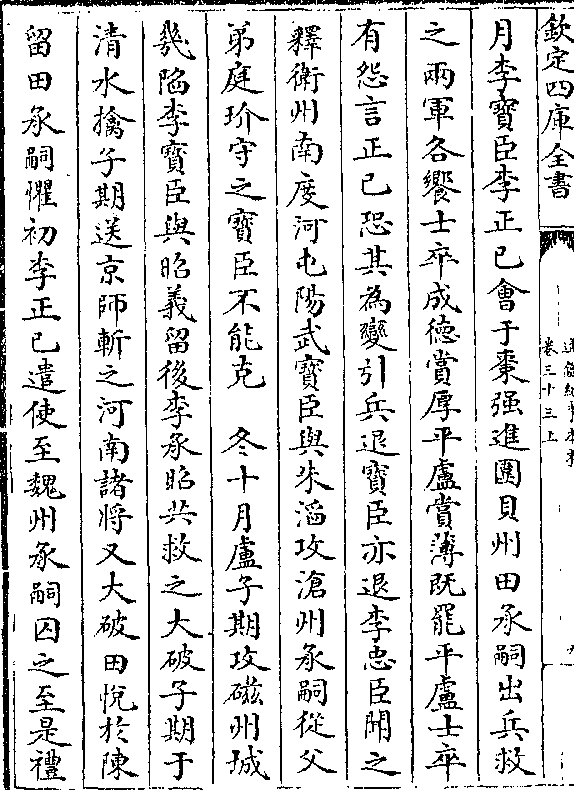 欽定四庫全書
卷三十三上
月李寶臣李正已會于棗强進圍貝州田承嗣出兵救
之兩軍各饗士卒成德賞厚平盧賞薄既罷平盧士卒
有怨言正已恐其為變引兵退寶臣亦退李忠臣聞之
釋衛州南度河屯陽武寶臣與朱滔攻滄州承嗣從父
弟庭玠守之寶臣不能克　冬十月盧子期攻磁州城
幾陷李寶臣與昭義留後李承昭共救之大破子期于
清水擒子期送京師斬之河南諸將又大破田悅於陳
留田承嗣懼初李正已遣使至魏州承嗣囚之至是禮